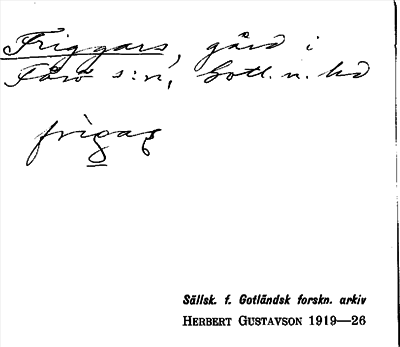 Friggars, gård i
Fårö s:n, Gotl. n. hd
frigas
Sällsk. f. Gotländsk forskn. arkiv
HERBERT GUSTAVSON 1919—26